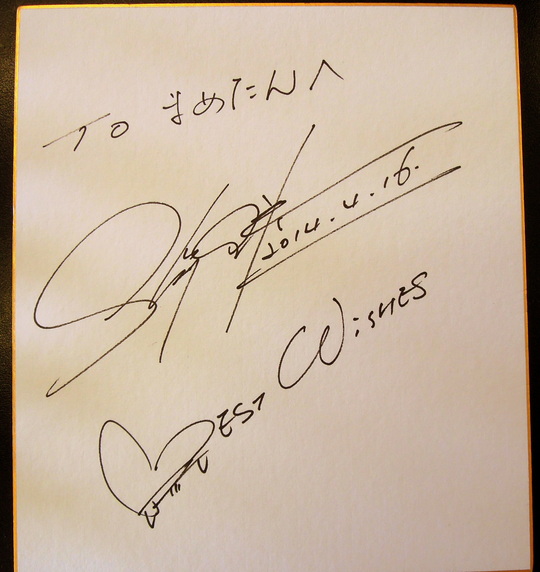 To まめたんへ
2014.4.16.
BEST WiSHES